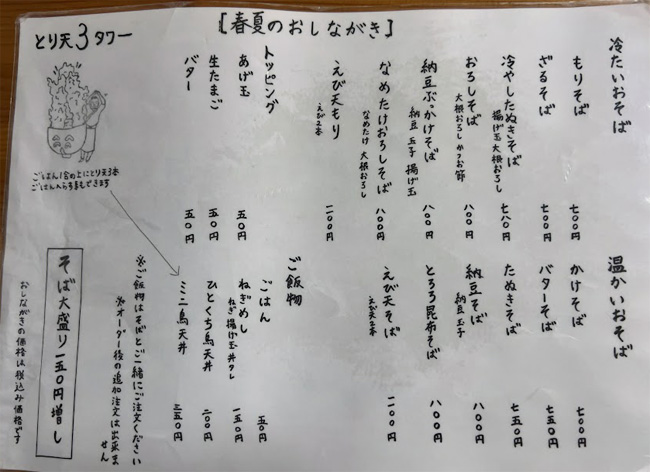 【春夏のおしながき】
冷たいおそば
もりそば 七〇〇円
ざるそば 七〇〇円
冷やしたぬきそば 七八〇円
揚げ玉 大根おろし
おろしそば 八〇〇円
大根おろし かつお節
納豆ぶっかけそば 八〇〇円
納豆 玉子 揚げ玉
なめたけおろしそば 八〇〇円
なめたけ 大根おろし
えび天もり 一一〇〇円
えび2本
トッピング
あげ玉 五〇円
生たまご 五〇円
バター 五〇円
温かいおそば
かけそば 七〇〇円
バターそば 七五〇円
たぬきそば 七五〇円
納豆そば 八〇〇円
納豆 玉子
とろろ昆布そば 八〇〇円
えび天そば 一一〇〇円
えび天2本
ご飯物
ごはん 五〇円
ねぎめし 一五〇円
ねぎ 揚げ玉 丼タレ
ひとくち鳥天丼 二〇〇円
ミニ鳥天丼 三五〇円
※ご飯物はそばとご一緒にご注文ください
※オーダー後の追加注文は出来ま
せん
とり天3タワー
ごはん1合の上にとり天3本
ごはん入らずもできます
そば大盛り一五〇円増し
おしながきの価格は税込み価格です